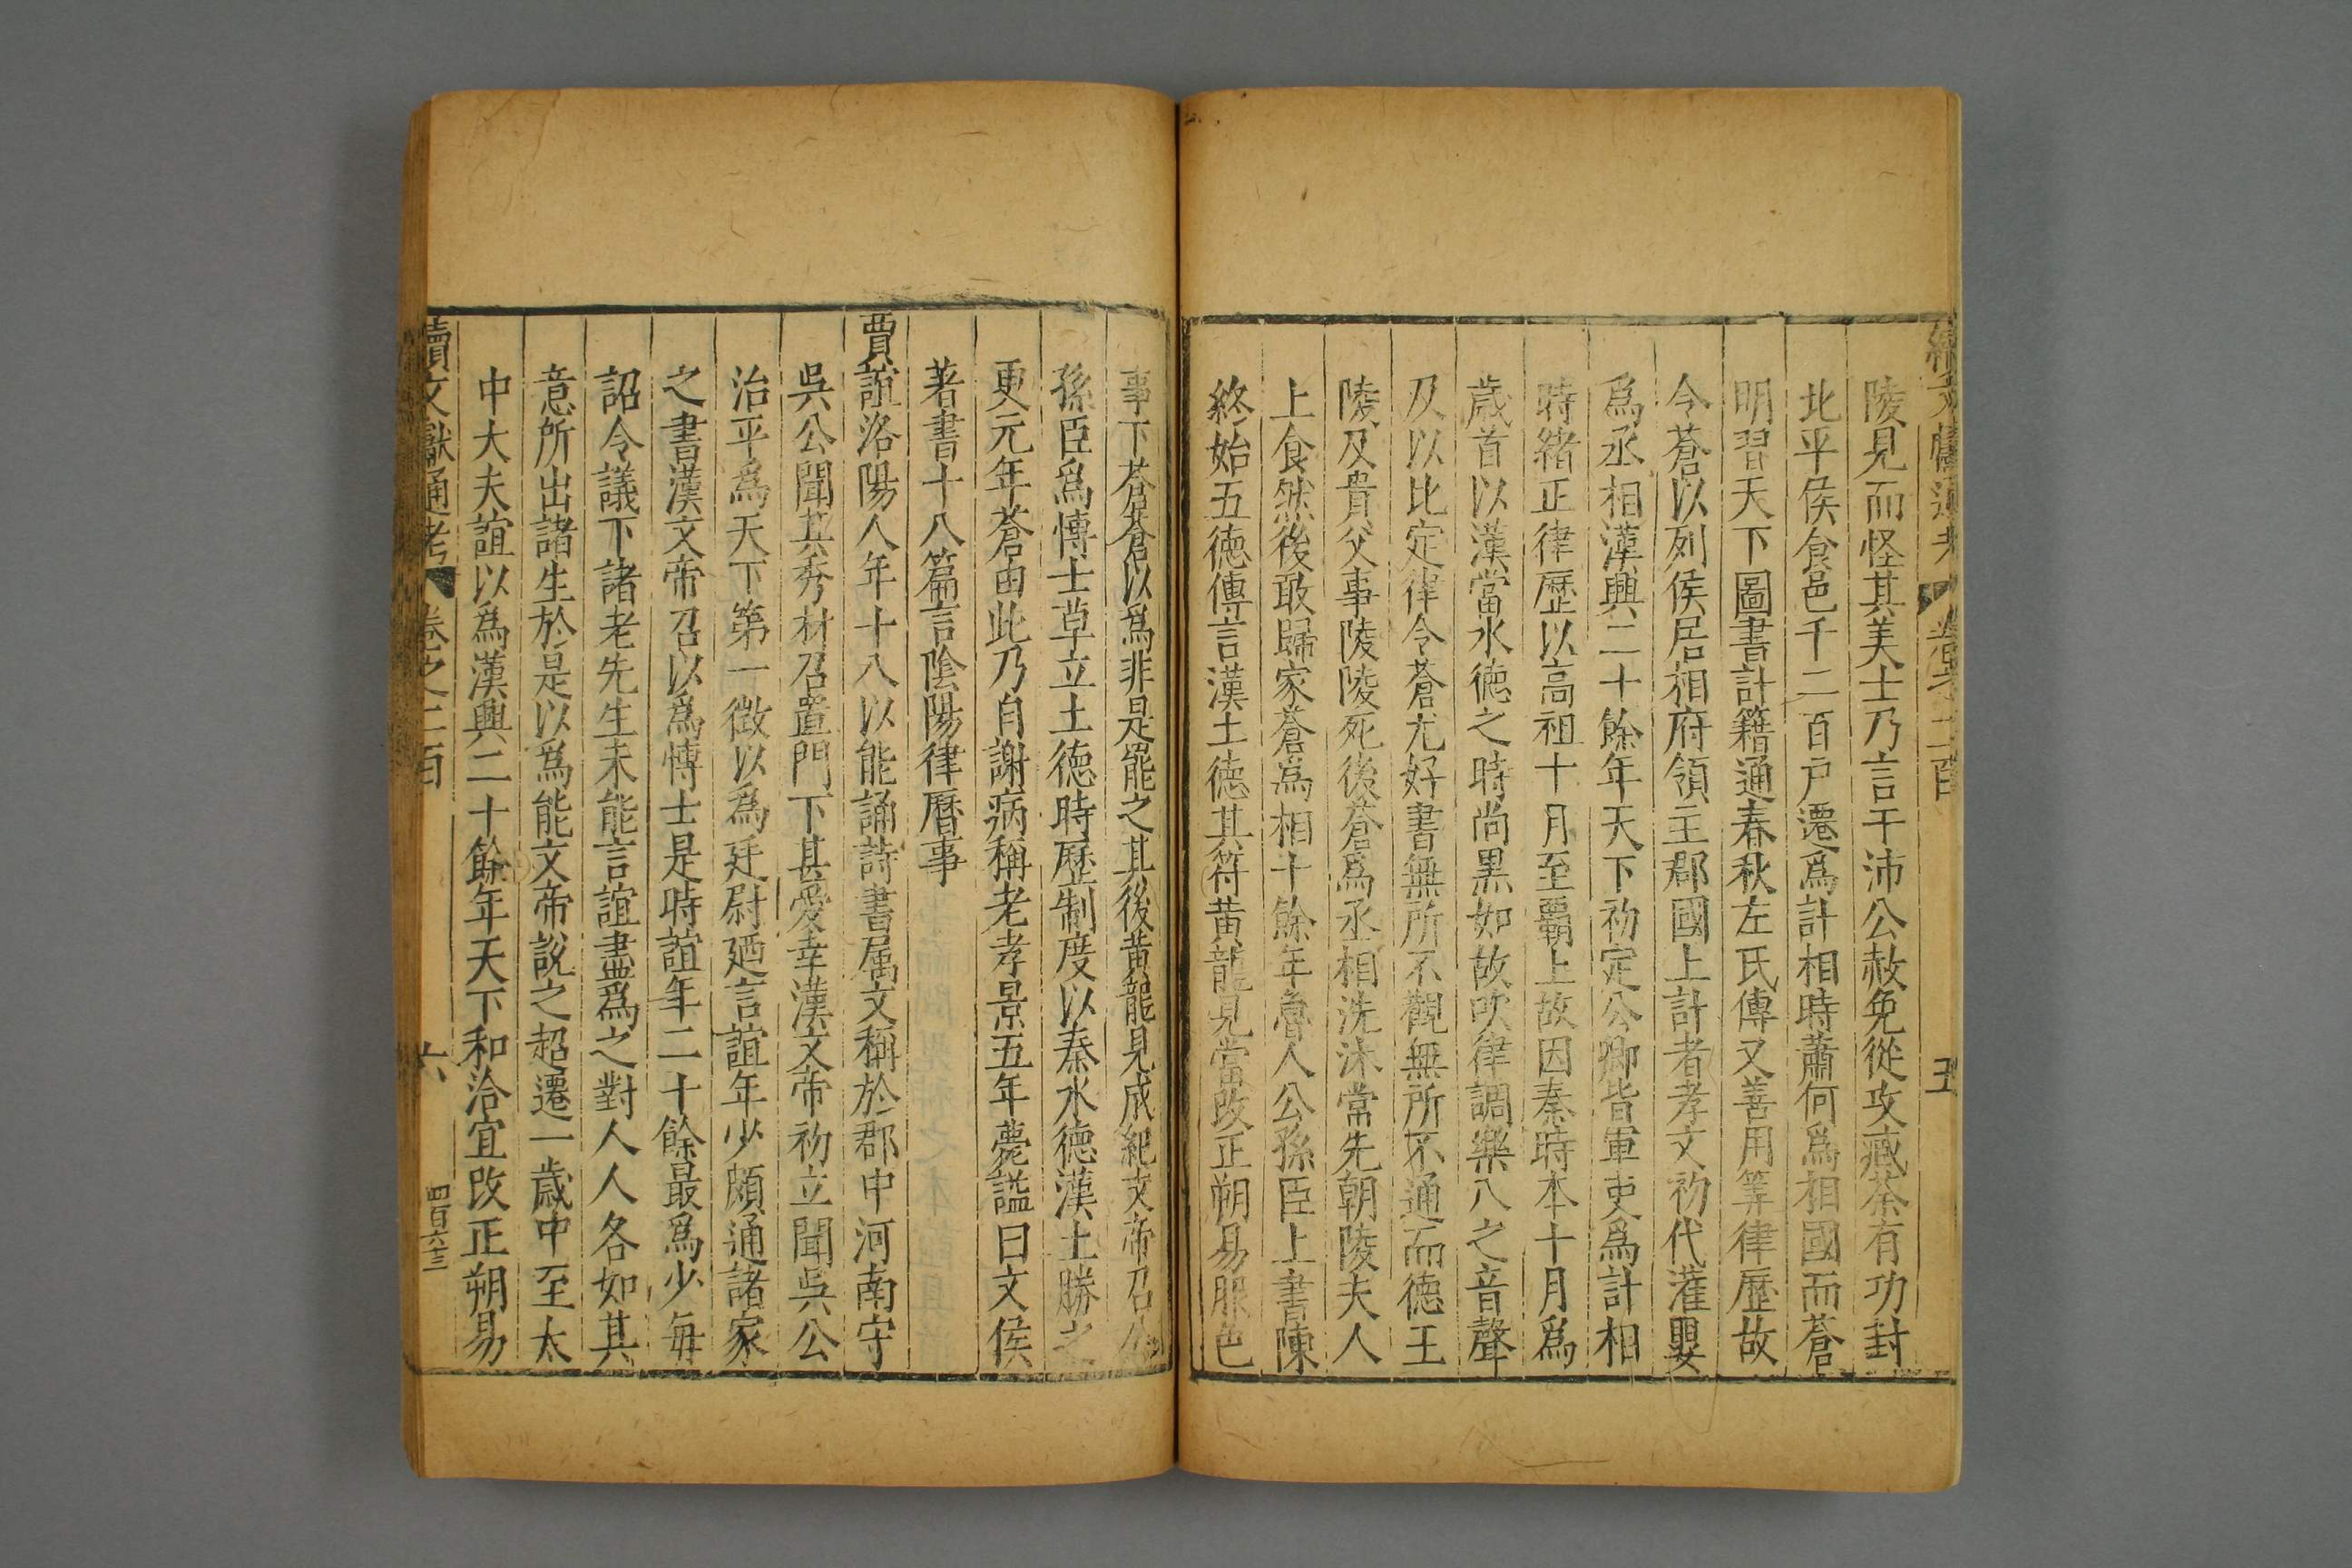 續文獻通考 卷之二百 五
陵見而怪其美士乃言干沛公赦免從攻臧荼有功封
北平侯食邑千二百戸遷爲計相時蕭何爲相國而蒼
明習天下圖書計籍通春秋左氏傳又善用筭律歴故
令蒼以列侯居相府領主郡國上計者孝文初代灌嬰
爲丞相漢興二十餘年天下初定公卿皆軍吏爲計相
時緒正律歴以高祖十月至覇上故因秦時本十月爲
歳首以漢當水徳之時尚黒如故吹律調樂八之音聲
及以比定律令蒼尤好書無所不觀無所不通而徳王
陵及貴父事陵陵死後蒼爲丞相洗沐常先朝陵夫人
上食然後敢歸家蒼爲相十餘年魯人公孫臣上書陳
終始五徳傳言漢土徳其符黄龍見當改正朔易服色
事下蒼蒼以爲非是罷之其後黄龍見成紀文帝召公
孫臣爲博士草立土徳時歴制度以秦水徳漢土勝之
更元年蒼由此乃自謝病稱老孝景五年薨謚曰文侯
著書十八篇言陰陽律暦事
賈誼洛陽人年十八以能誦詩書属文稱於郡中河南守
吳公聞其秀材召置門下甚愛幸漢文帝初立聞吳公
治平爲天下第一徴以爲廷尉廼言誼年少頗通諸家
之書漢文帝召以爲博士是時誼年二十餘最爲少毎
詔令議下諸老先生未能言誼盡爲之對人人各如其
意所出諸生於是以爲能文帝說之超遷一歳中至太
中大夫誼以爲漢興二十餘年天下和洽宜改正朔易
續文獻通考 卷之二百 六 四百六十三